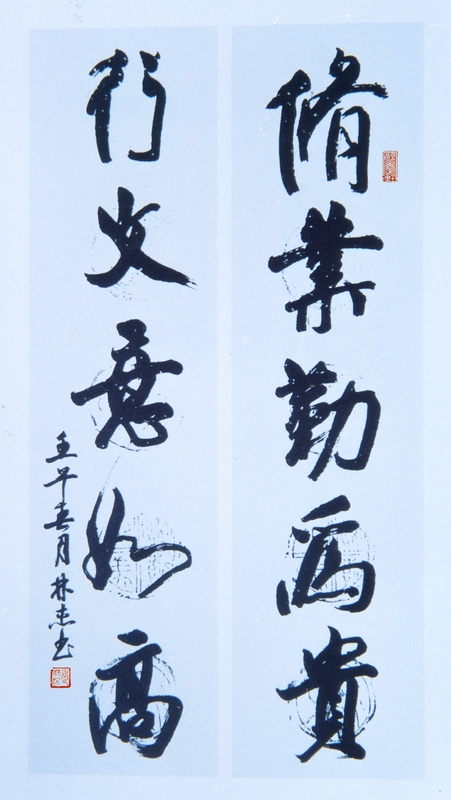 脩業勤為貴
行文意如高
壬午春月林杰书